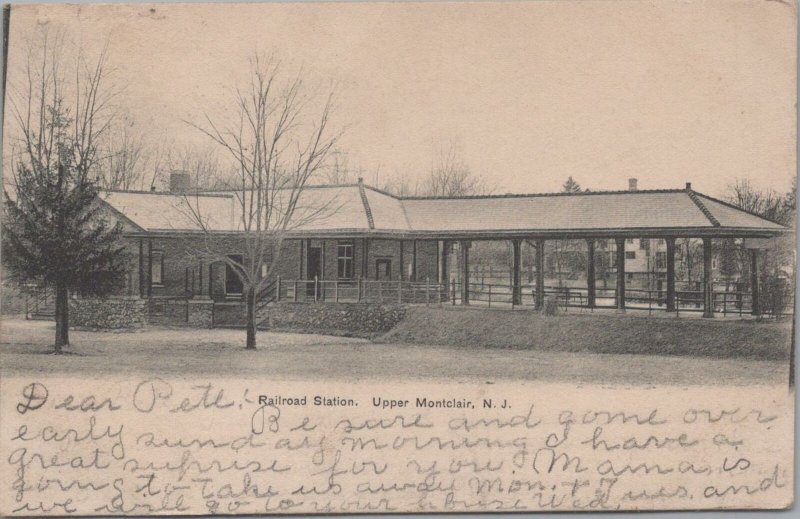 Railroad Station. Upper Montclair, N. J.
Dear Pete:- Be sure and come over
early sunday morning I have a
great suprise for you. Mama is
going to take us away Mon. + Tues. and
we will go to your house Wed. and